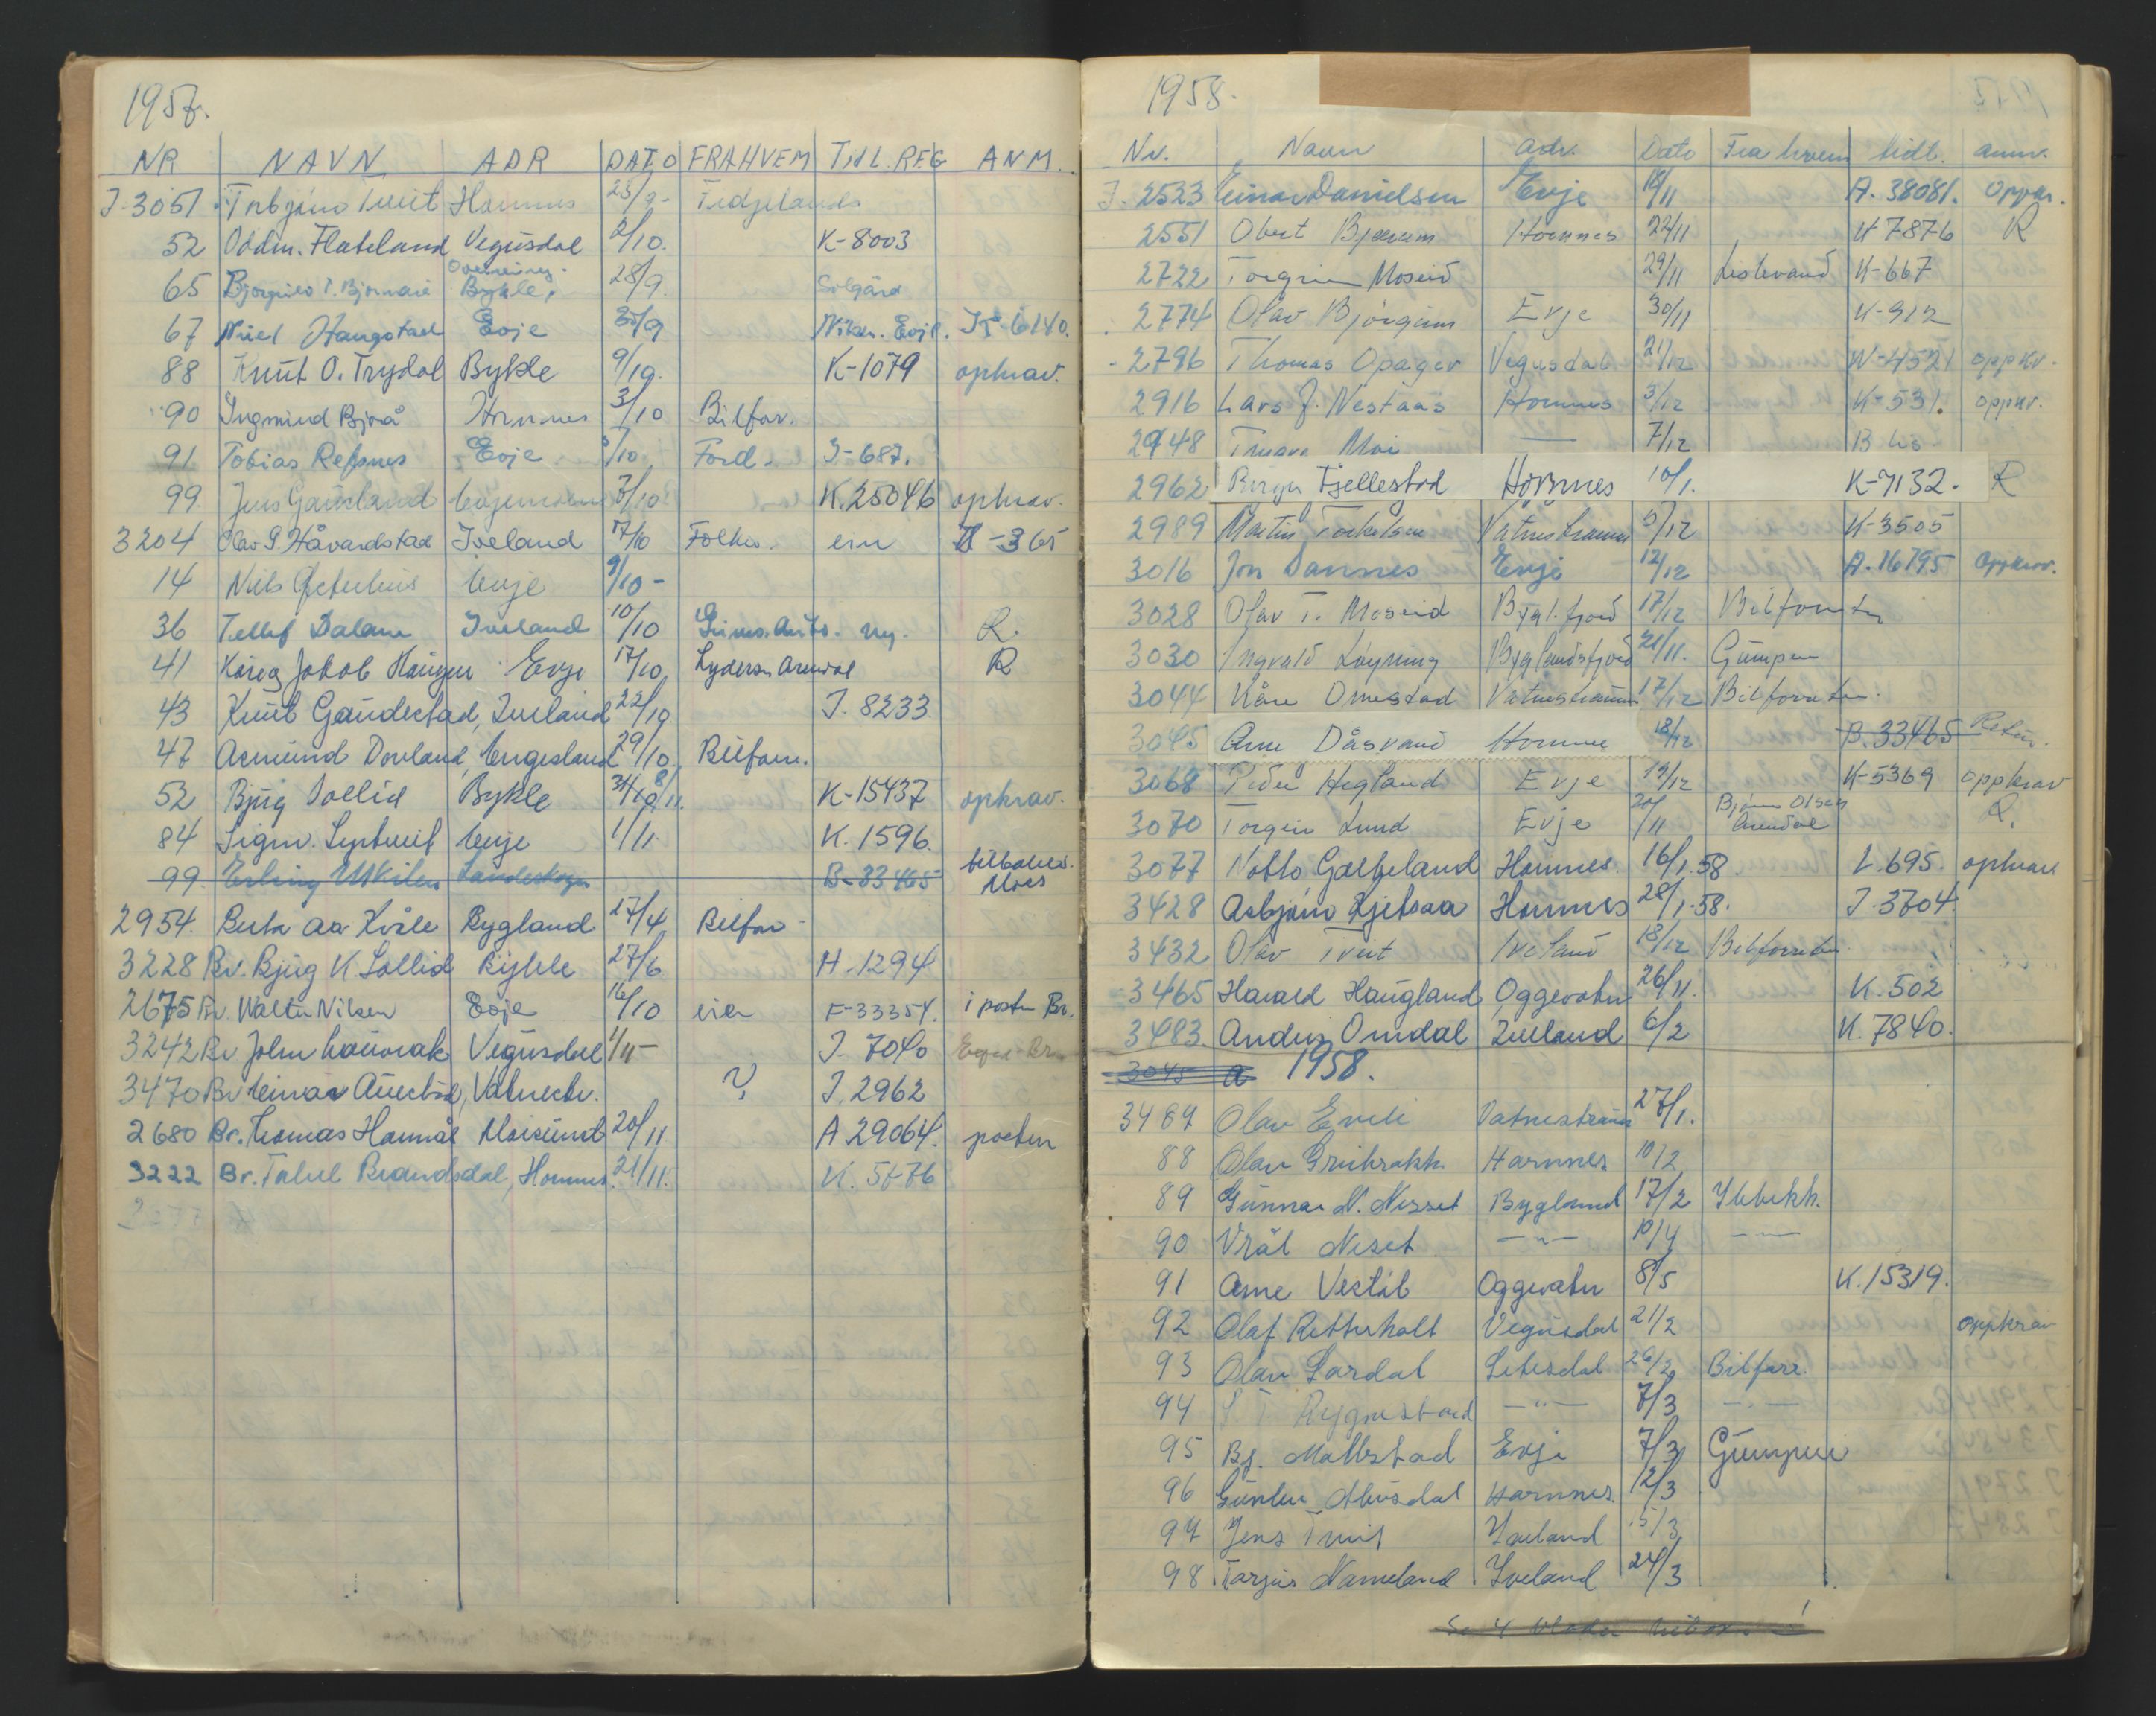 1957.
NR NAVN ADR DATO FRAHVEM TIDL. REG ANM.
J-3051 Tveit Hornnes 25/9-
52 Oddm. Flateland Vegusdal 2/10. K-8003
65 Bykle, 28/9 Solgård
67 Haugstad Evje 30/9 Evje. 6140.
88 Knut O. Trydal Bykle 9/10. K-1079 opkrav.
90 Ingmund Bjorå Hornnes 3/10 Bilfor.
91 Tobias Refsnes Evje /10 Ford. J-687.
99. Jens Gaukland 7/10 K.25046 opkrav.
3204 Olav G. Håvardstad Iveland 17/10 -365
14 Nils Evje 9/10-
36 Tellef Dalane Iveland 10/10 ny. R.
41 Jakob Haugen Evje 17/10 Arendal R
43 Knut Gaudestad, Iveland 22/10 J. 8233.
47 Asmund Engesland 29/10 Bilforr.
52 Bjug Sollid Bykle K-15437 opkrav.
84 Sigm. Evje 1/11 K. 1596.
99. Erling Uskilen Landeskogen B-33465 tilbakes. Moes
2954. Aa. Kvåle Bygland 27/4 Bilfor-
3228 Br. Bjug K Sollid Bykle 27/6 H.1294
2675 Br. Walter Nilsen Evje 16/10 eier F-33354. i posten Br.
3242 Br John Vegusdal 1/11- J. 7040
3470 Br Einar , Vatnestr. ? J. 2962
2680 Br. Tomas Hannås Moisund 20/11 A.29064. posten
3222 Br. Brandsdal, Hornnes. 21/11. K. 5876
1958.
Nr. Navn Adr. Dato Fra hvem tidl. anm.
J. 2523 Einar Danielsen Evje 18/11 A. 38081. oppkr.
2551 Hornnes 22/11 K 7876 R
2722 Torgrim Moseid 29/11 K-667
2774 Olav Bjorgum Evje 30/11 K-912
2796 Thomas Vegusdal 21/12 -4521 oppkr.
2916 Lars J. Nestaas Hornnes 3/12 K-531. oppkr.
2948 Moi — 7/12
2962 Birger Fjellestad Hornnes 10/1. K-7132. R
2989 Martin Torkelsen Vatnestraum 5/12 K-3505
3016 Jon Dannes Evje 12/12 A.16795 Oppkrav.
3028 Olav T. Moseid Bygl.fjord 17/12 Bilforretn
3030 Ingvald Løyning Byglandsfjord 21/11. Gumpen
3044 Kåre Omestad Vatnestraum 17/12 Bilforretn.
3045 Arne Dåsvand Hornnes 18/12 B.33465 Retur.
3068 Peder Hegland Evje 19/12 K-5369 oppkrav
3070 Torgeir Lund Evje 20/11 Bjarne Olsen Arendal R.
3077 Notto Hornnes. 16/1.58 L.695. opkrav
3428 Asbjørn Kjetsaa Hornnes 28/1-58. J.3704.
3432 Olav Tveit Iveland 18/12 Bilforretn.
3465 Harald Haugland Oggevatn 26/11. K.502
3483. Anders Omdal Iveland 6/2 K.7840.
3045 a 1958.
3487 Olav Vatnestraum 27/1.
88 Olav Hornnes 10/2
89 Gunnar N. Nesset Bygland 17/2
90 Vrål Neset —"— 10/4 —"—
91 Arne Vestøl Oggevatn 8/5 K.15319.
92 Olaf Retterholt Vegusdal 21/2 oppkrav
93 Olav Lardal Setesdal 26/2 Bilforr.
94 Rygnestad —"— 7/3 —"—
95 Bj. Mollestad Evje 7/3 Gumpen
96 Hornnes. 12/3
97 Jens Tveit Iveland 15/3
98. Tarjei Iveland 24/3